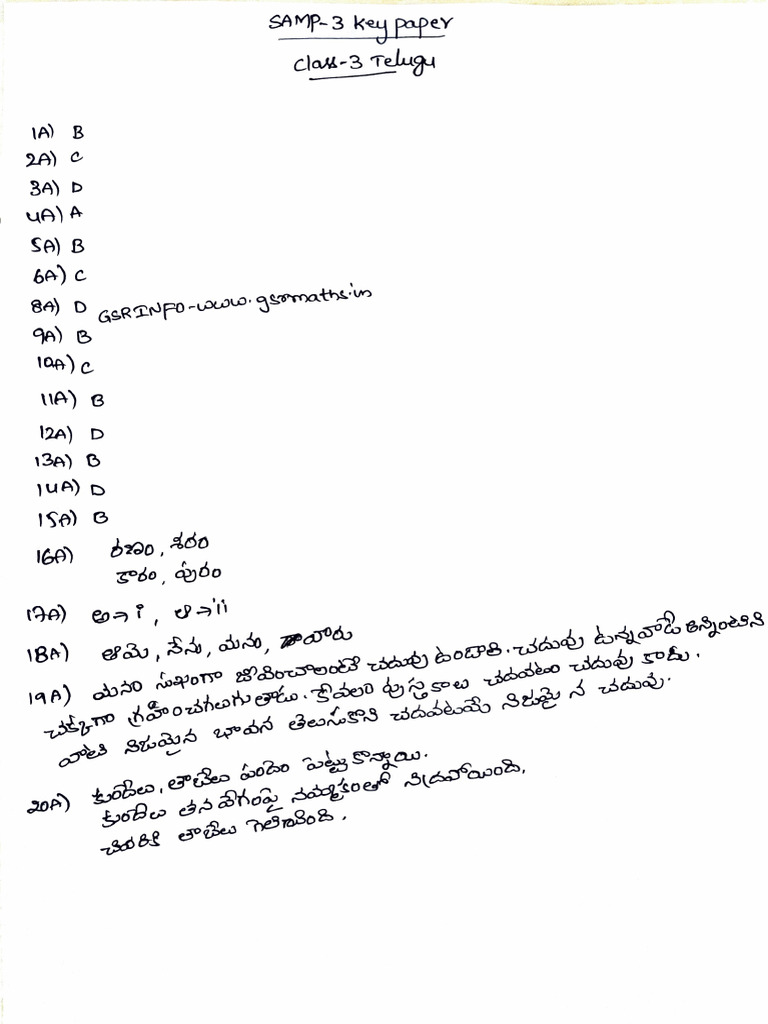 SAMP-3 Key paper
Class-3 Telugu
1A) B
2A) C
3A) D
4A) A
5A) B
6A) C
8A) D GSRINFO-www.gsrmaths.in
9A) B
10A) C
11A) B
12A) D
13A) B
14A) D
15A) B
16A) రణం, శరం
కారం, పురం
17A) అ→i, ఆ→ii
18A) ఆమె, నేను, మనం, వారు
19A) మనం సుఖంగా జీవించాలంటే చదువు ఉండాలి. చదువు ఉన్నవాడే అన్నింటిని
చక్కగా గ్రహించగలుగుతాడు. కేవలం పుస్తకాల చదవటం చదువు కాదు.
వాటి నిజమైన భావన తెలుసుకొని చదవటమే నిజమై న చదువు.
20A) కుందేలు, తాబేలు పందెం పెట్టుకొన్నాయి.
కుందేలు తన వేగంపై నమ్మకంతో నిద్రపోయింది.
చివరికి తాబేలు గెలిచింది.